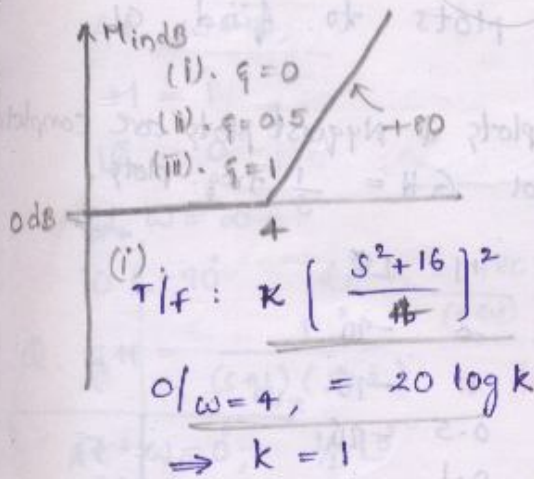 plots to find
M in dB
(i). ξ = 0
(ii). ξ = 0.5
(iii). ξ = 1
+80
0 dB
4
(i)
T/f : K [ (s² + 16) / 16 ]²
0/ω=4, = 20 log K
⇒ k = 1